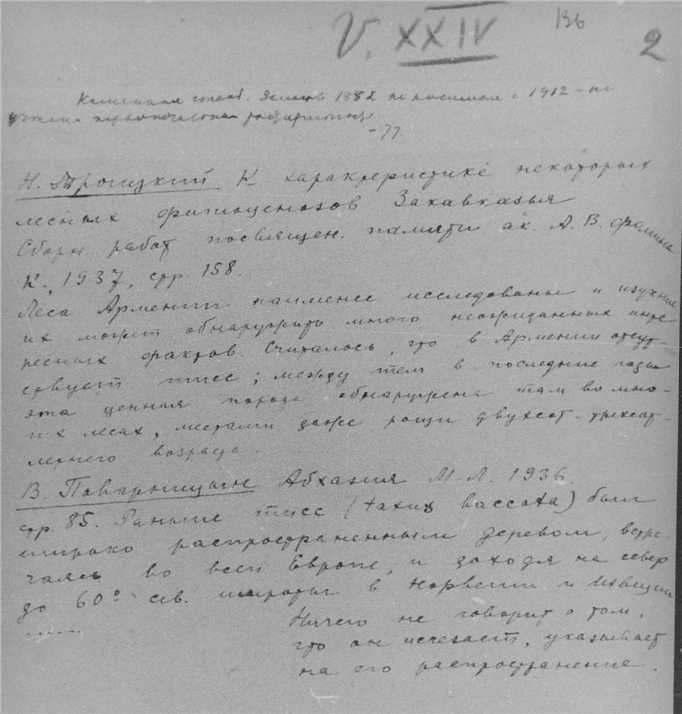 V. XXIV 136 2
1882 1912 – не
– 77.
Н. Троицкий К характеристике некоторых
лесных фитоценозов Закавказья
Сборн. работ посвящен. памяти ак. А. В. Фомина
К., 1937, стр. 158.
Леса Армении наименее исследованы и изучение
их может обнаружить много неожиданных инте
ресных фактов. Считалось, что в Армении отсут
ствует тисс; между тем в последние годы
эта ценная порода обнаружена там во мно-
гих лесах, местами даже рощи двухсот-трехсот-
летнего возраста.
В. Поварницын Абхазия М. Л. 1936
стр. 85. Раньше тисс (taxus baccata) был
широко распространенным деревом, встре-
чаясь во всей Европе, и заходя на север
до 60° сев. широты в Норвегии и Швеции
.......
Ничего не говорит о том,
что он исчезает, указывает
на его распространение.